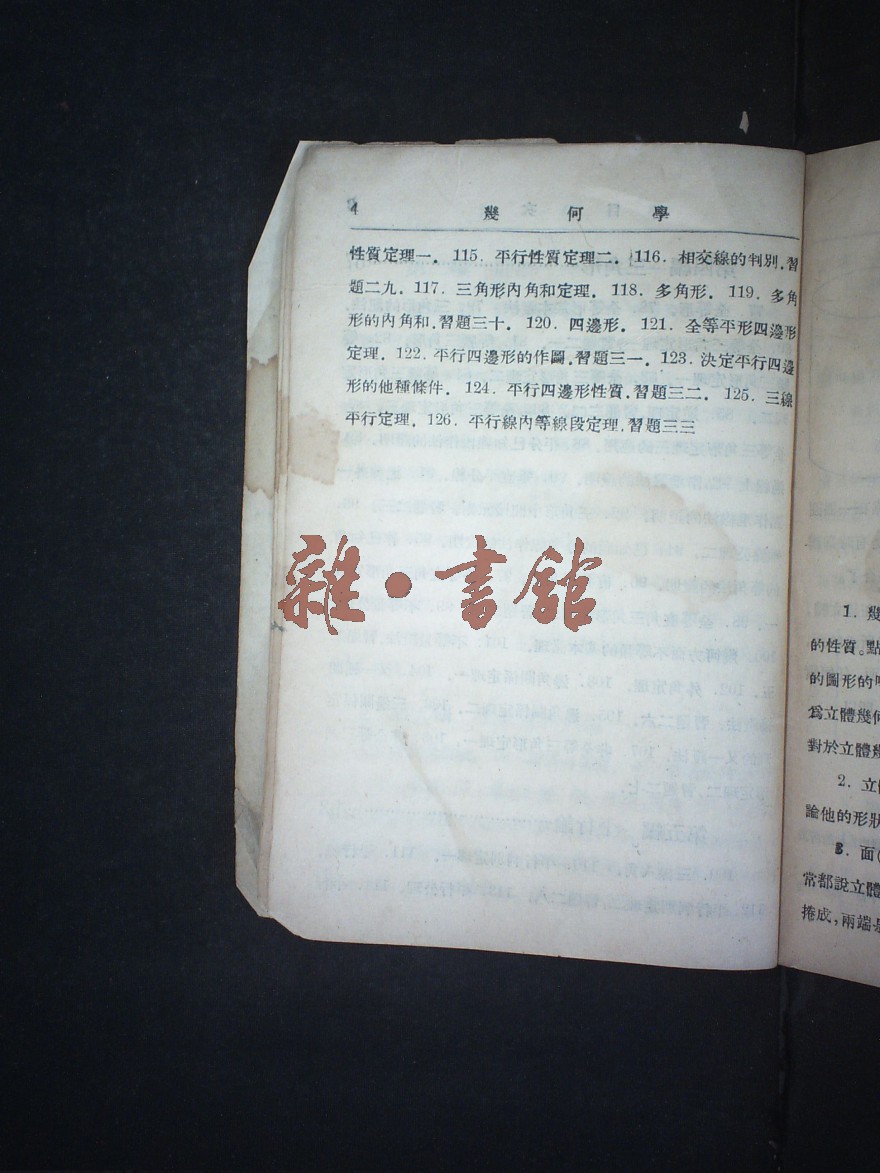 4 幾何學
性質定理一. 115. 平行性質定理二. 116. 相交線的判別.習
題二九. 117. 三角形內角和定理. 118. 多角形. 119. 多角
形的內角和.習題三十. 120. 四邊形. 121. 全等平形四邊形
定理. 122. 平行四邊形的作圖.習題三一. 123. 決定平行四邊
形的他種條件. 124. 平行四邊形性質.習題三二. 125. 三線
平行定理. 126. 平行線內等線段定理.習題三三
雜·書館
1. 幾
的性質。點
的圖形的
爲立體幾何
對於立體幾
2. 立
論他的形狀
3. 面(
常都說立體
捲成,兩端是